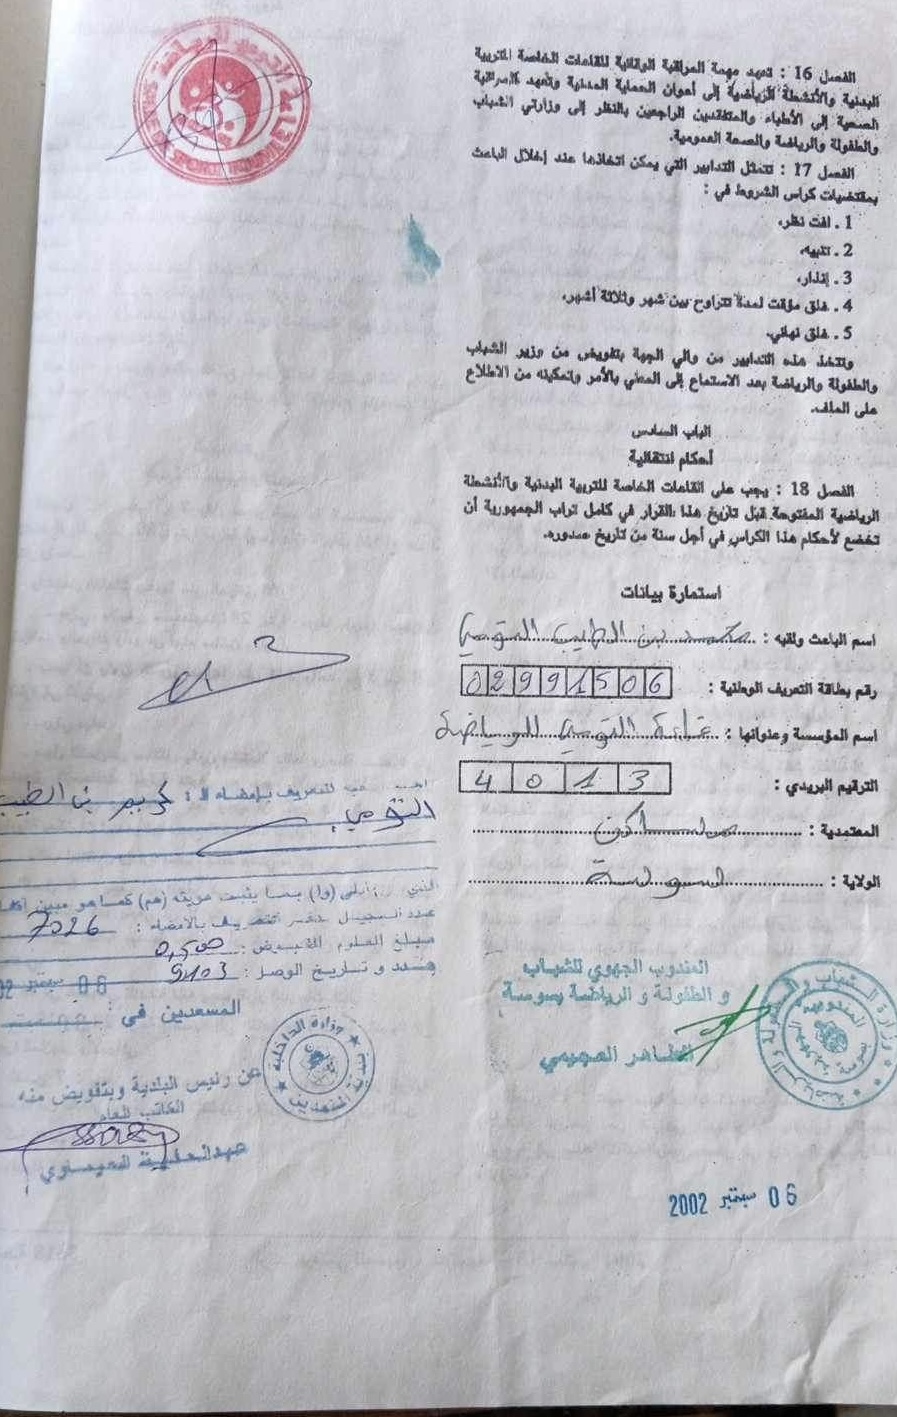 الفصل 16 : تعهد مهمة المراقبة الوقائية للقاعات الخاصة للتربية
البدنية والأنشطة الرياضية إلى أعوان الحماية المدنية وتعهد المراقبة
الصحية إلى الأطباء والمتفقدين الراجعين بالنظر إلى وزارتي الشباب
والطفولة والرياضة والصحة العمومية.
الفصل 17 : تتمثل التدابير التي يمكن اتخاذها عند إخلال الباعث
بمقتضيات كراس الشروط في :
1 ـ لفت نظر،
2 ـ تنبيه،
3 ـ إنذار،
4 ـ غلق مؤقت لمدة تتراوح بين شهر وثلاثة أشهر،
5 ـ غلق نهائي.
وتتخذ هذه التدابير من والي الجهة بتفويض من وزير الشباب
والطفولة والرياضة بعد الاستماع إلى المعني بالأمر وتمكينه من الاطلاع
على الملف.
الباب السادس
أحكام انتقالية
الفصل 18 : يجب على القاعات الخاصة للتربية البدنية والأنشطة
الرياضية المفتوحة قبل تاريخ هذا القرار في كامل تراب الجمهورية أن
تخضع لأحكام هذا الكراس في أجل سنة من تاريخ صدوره.
استمارة بيانات
اسم الباعث ولقبه : محمد بن الطيب التومي
رقم بطاقة التعريف الوطنية : 02991506
اسم المؤسسة وعنوانها : قاعة التومي للرياضة
الترقيم البريدي : 4013
المعتمدية : مساكن
الولاية : سوسة
المندوب الجهوي للشباب
و الطفولة و الرياضة بسوسة
الطاهر العجيمي
06 سبتمبر 2002
للتعريف بإمضاء بن الطيب
التومي
بما يثبت هويته (هم) كما هو مبين
عدد التسجيل بدفتر التعريف بالامضاء : 7026
مبلغ المعلوم المقبوض : 0,500
عدد و تاريخ الوصل : 9103
06 سبتمبر
المسعدين في :
وزارة الداخلية
عن رئيس البلدية وبتفويض منه
الكاتب العام